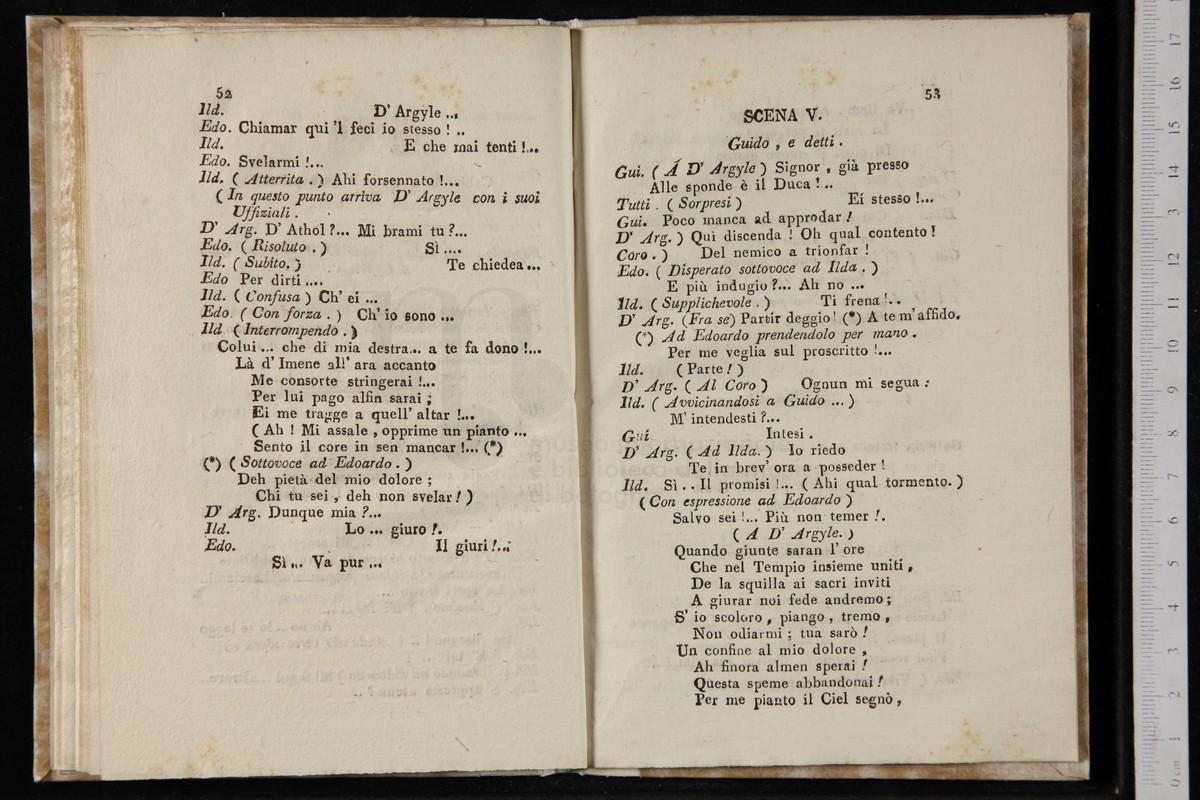 52
Ild. D' Argyle ...
Edo. Chiamar qui 'l feci io stesso ! ..
Ild. E che mai tenti !...
Edo. Svelarmi !...
Ild. ( Atterrita . ) Ahi forsennato !...
( In questo punto arriva D' Argyle con i suoi
Uffiziali .
D' Arg. D' Athol ?... Mi brami tu ?...
Edo. ( Risoluto . ) Sì ....
Ild. ( Subito. ) Te chiedea ...
Edo Per dirti ....
Ild. ( Confusa ) Ch' ei ...
Edo. ( Con forza . ) Ch' io sono ...
Ild ( Interrompendo . )
Colui ... che di mia destra... a te fa dono !...
Là d' Imene all' ara accanto
Me consorte stringerai !...
Per lui pago alfin sarai ;
Ei me tragge a quell' altar !...
( Ah ! Mi assale , opprime un pianto ...
Sento il core in sen mancar !... (*)
(*) ( Sottovoce ad Edoardo . )
Deh pietà del mio dolore ;
Chi tu sei , deh non svelar ! )
D' Arg. Dunque mia ?...
Ild. Lo ... giuro !.
Edo. Il giuri !...
Sì ... Va pur ...
53
SCENA V.
Guido , e detti .
Gui. ( A D' Argyle ) Signor , già presso
Alle sponde è il Duca !..
Tutti . ( Sorpresi ) Ei stesso !...
Gui. Poco manca ad approdar !
D' Arg. ) Qui discenda ! Oh qual contento !
Coro . ) Del nemico a trionfar !
Edo. ( Disperato sottovoce ad Ilda . )
E più indugio ?... Ah no ...
Ild. ( Supplichevole . ) Ti frena !..
D' Arg. (Fra se) Partir deggio ! (*) A te m' affido.
(*) Ad Edoardo prendendolo per mano .
Per me veglia sul proscritto !...
Ild. ( Parte ! )
D' Arg. ( Al Coro ) Ognun mi segua :
Ild. ( Avvicinandosi a Guido ... )
M' intendesti ?...
Gui Intesi .
D' Arg. ( Ad Ilda. ) Io riedo
Te in brev' ora a posseder !
Ild. Sì .. Il promisi !... ( Ahi qual tormento. )
( Con espressione ad Edoardo )
Salvo sei !... Più non temer !.
( A D' Argyle. )
Quando giunte saran l' ore
Che nel Tempio insieme uniti ,
De la squilla ai sacri inviti
A giurar noi fede andremo ;
S' io scoloro , piango , tremo ,
Non odiarmi ; tua sarò !
Un confine al mio dolore ,
Ah finora almen sperai !
Questa speme abbandonai !
Per me pianto il Ciel segnò ,